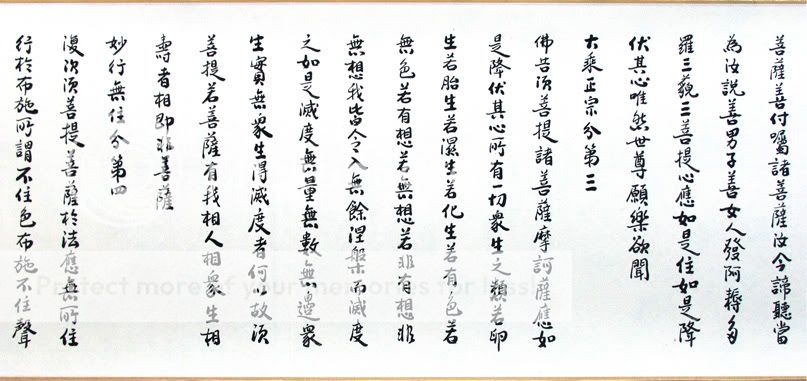 菩薩善付囑諸菩薩汝今諦聽當
為汝說善男子善女人發阿耨多
羅三藐三菩提心應如是住如是降
伏其心唯然世尊願樂欲聞
大乘正宗分第三
佛告須菩提諸菩薩摩訶薩應如
是降伏其心所有一切眾生之類若卵
生若胎生若濕生若化生若有色若
無色若有想若無想若非有想非
無想我皆令入無餘涅槃而滅度
之如是滅度無量無數無邊眾
生實無眾生得滅度者何以故須
菩提若菩薩有我相人相眾生相
壽者相即非菩薩
妙行無住分第四
復次須菩提菩薩於法應無所住
行於布施所謂不住色布施不住聲
Protect more of your memories for less!